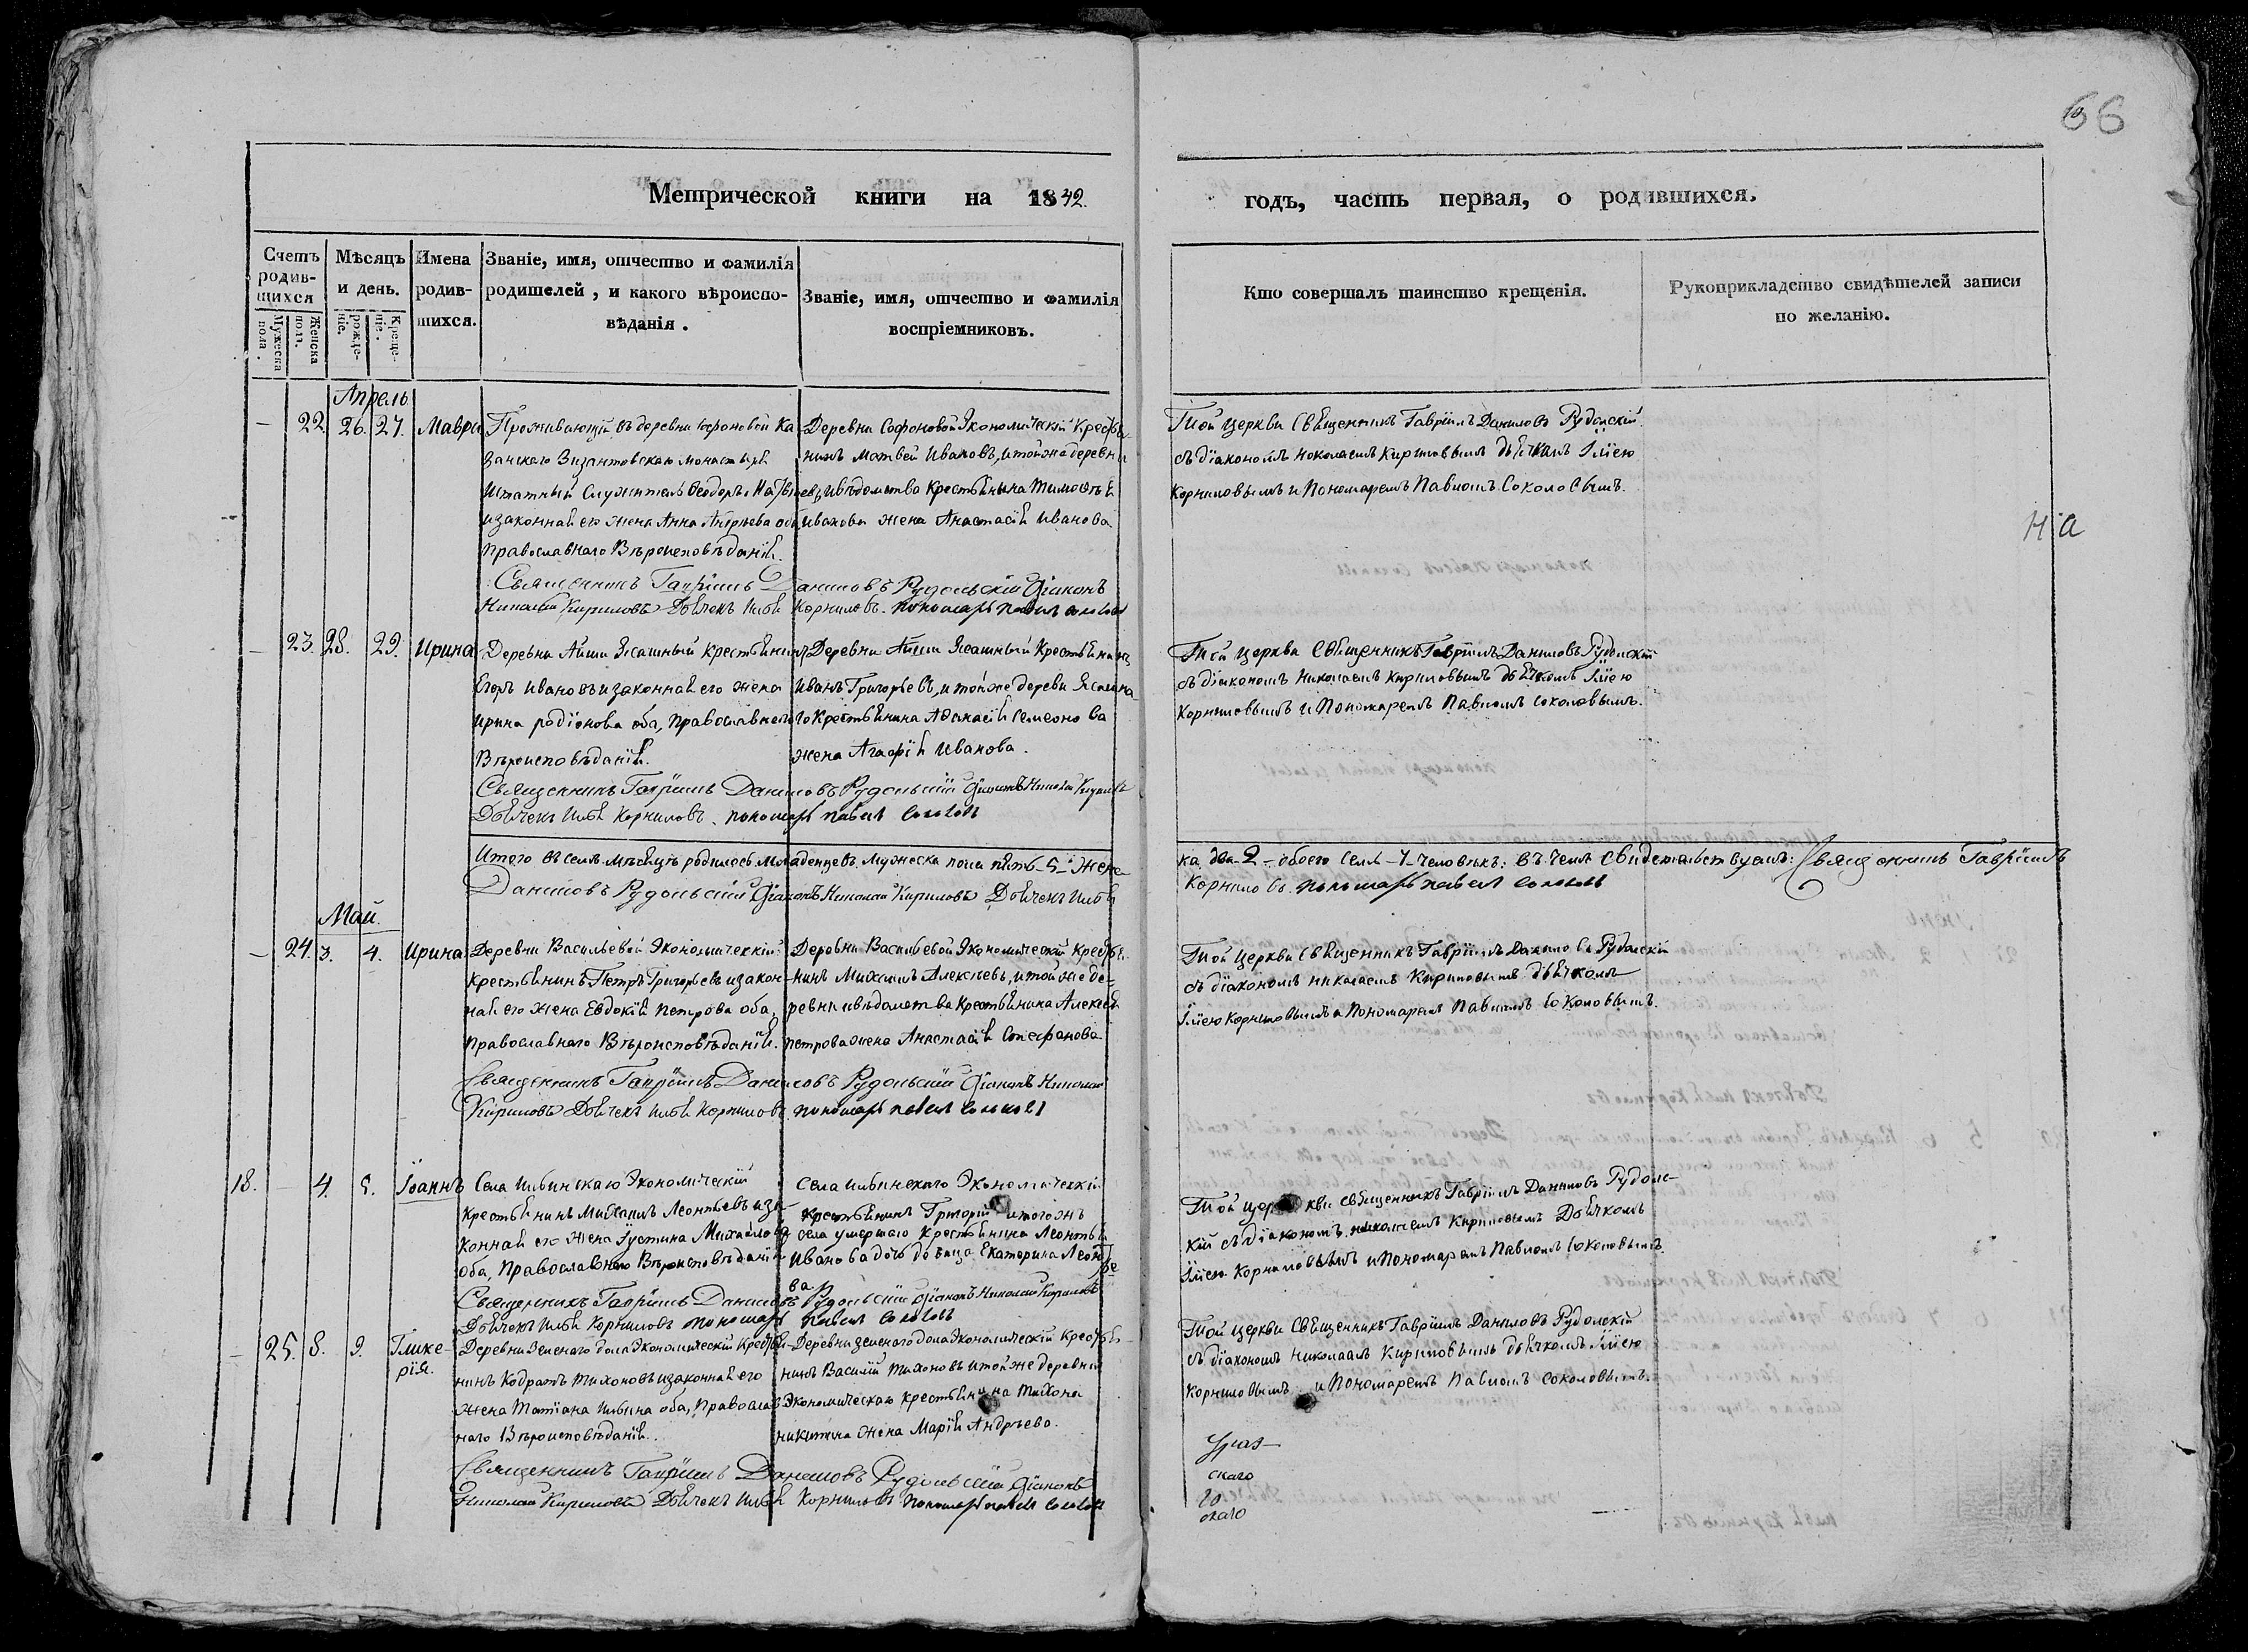 66
Метрической книги на 1842.
годъ, часть первая, о родившихся.
Счетъ родившихся
Мужеска пола.
Женска пола.
Мѣсяцъ и день.
рожденіе.
Крещеніе.
Имена родившихся.
Званіе, имя, отчество и фамилія
родителей, и какого вѣроиспо-
вѣданія.
Званіе, имя, отчество и фамилія
воспріемниковъ.
Кто совершалъ таинство крещенія.
Рукоприкладство свидѣтелей записи
по желанію.
Апрель
– 22. 26. 27. Мавра
Проживающій въ деревни Софоновой Ка
занского Византовскаго монастыря
штатный служитель Феодоръ
и законная его жена Анна оба
православнаго Вѣроисповѣданія.
Деревни Софоновой Экономическій Кресть-
нинъ Матвей Ивановъ, и той же деревни
и вѣдомства Крестьянина Тимофея
Иванова жена Анастасія Иванова
Той церкви Священникъ Гавріилъ Даниловъ Рудольскій
съ діакономъ Николаемъ Кириловымъ дьячкомъ Иліею
Корниловымъ и Пономаремъ Павломъ Соколовымъ.
На
Священникъ Гавріилъ Даниловъ Рудольскій Діаконъ
Николай Кириловъ Дьячекъ Илья Корниловъ. пономарь павел соколов
– 23. 28. 29. Ирина
Деревни Айши Ясашный Крестьянинъ
Егоръ Ивановъ и законная его жена
Ирина родіонова оба, православнаго
Вѣроисповѣданія.
Деревни Айши Ясашный Крестьянинъ
Иванъ Григорьевъ, и той же дерeвни Ясашна
го Крестьянина Афанасія Семенова
жена Агафія Иванова.
Той церкви Священникъ Гавріилъ Даниловъ Рудольскій
съ діакономъ Николаемъ Кириловымъ дьячкомъ Иліею
Корниловымъ и Пономаремъ Павломъ соколовымъ.
Священникъ Гавріилъ Даниловъ Рудольскій Діаконъ Николай Кириловъ
Дьячекъ Илья Корниловъ. пономарь павел соколов
Итого въ семъ мѣсяцѣ родилось младенцевъ мужеска пола пять -5- Женс
ка два -2- обоего семь -7- человѣкъ: въ чемъ свидетельствуемъ: Священникъ Гавріилъ
Даниловъ Рудольскій Діаконъ Николай Кириловъ Дьячекъ Илья
Корниловъ. пономарь павел соколов
Май.
– 24. 3. 4. Ирина
Деревни Васильевой Экономическій
Крестьянинъ Петръ Григорьевъ и закон-
ная его жена Евдокія Петрова оба,
православнаго Вѣроисповѣданія.
Деревни Васильевой Экономическій Крестья
нинъ Михаилъ Алексѣевъ, и той же де-
ревни и вѣдомства Крестьянина Алексея
петрова жена Анастасія Стефанова
Той церкви Священникъ Гавріилъ Даниловъ Рудольскій
съ діакономъ Николаемъ Кириловымъ дьячкомъ
Иліею Корниловымъ и Пономаремъ Павломъ Соколовымъ.
Священникъ Гавріилъ Даниловъ Рудольскій Діаконъ Николай
Кириловъ Дьячекъ Илья Корниловъ. пономарь павел соколов
18. – 4. 5. Іоаннъ
Села Ильинскаго Экономическій
Крестьянинъ Михаилъ Леонтьевъ и за-
конная его жена Іустина Михайлова
оба, Православнаго Вѣроисповѣданія
Села Ильинскаго Экономическій
Крестьянинъ Григорій и того жъ
села умершаго Крестьянина Леонтья
Иванова дочь девица Екатерина Леонтье
ва
Той церкви священникъ Гавріилъ Даниловъ Рудоль-
скій съ діакономъ николаемъ Кириловымъ Дьячкомъ
Иліею Корниловымъ и Пономаремъ Павломъ Соколовымъ
Священникъ Гавріилъ Даниловъ Рудольскій Діаконъ Николай Кириловъ
Дьячекъ Илья Корниловъ пономарь павел соколов
– 25. 8. 9. Глике-
рія.
Деревни Зеленаго дола Экономическій Крестья-
нинъ Кодратъ Тихоновъ и законная его
жена Татіана Ильина оба, Православ
наго Вѣроисповѣданія.
Деревни Зеленаго дола Экономическій Крестья
нинъ Василій Тихоновъ и той же деревни
Экономическаго Крестьянина Тихона
никитина жена Марія Андрѣева.
Той церкви Священникъ Гавріилъ Даниловъ Рудольскій
съ діакономъ Николаемъ Кириловымъ дьячкомъ Иліею
Корниловымъ и Пономаремъ Павломъ соколовымъ.
Священникъ Гавріилъ Даниловъ Рудольскій Діаконъ
Николай Кириловъ Дьячекъ Илья Корниловъ пономарь павел соколов